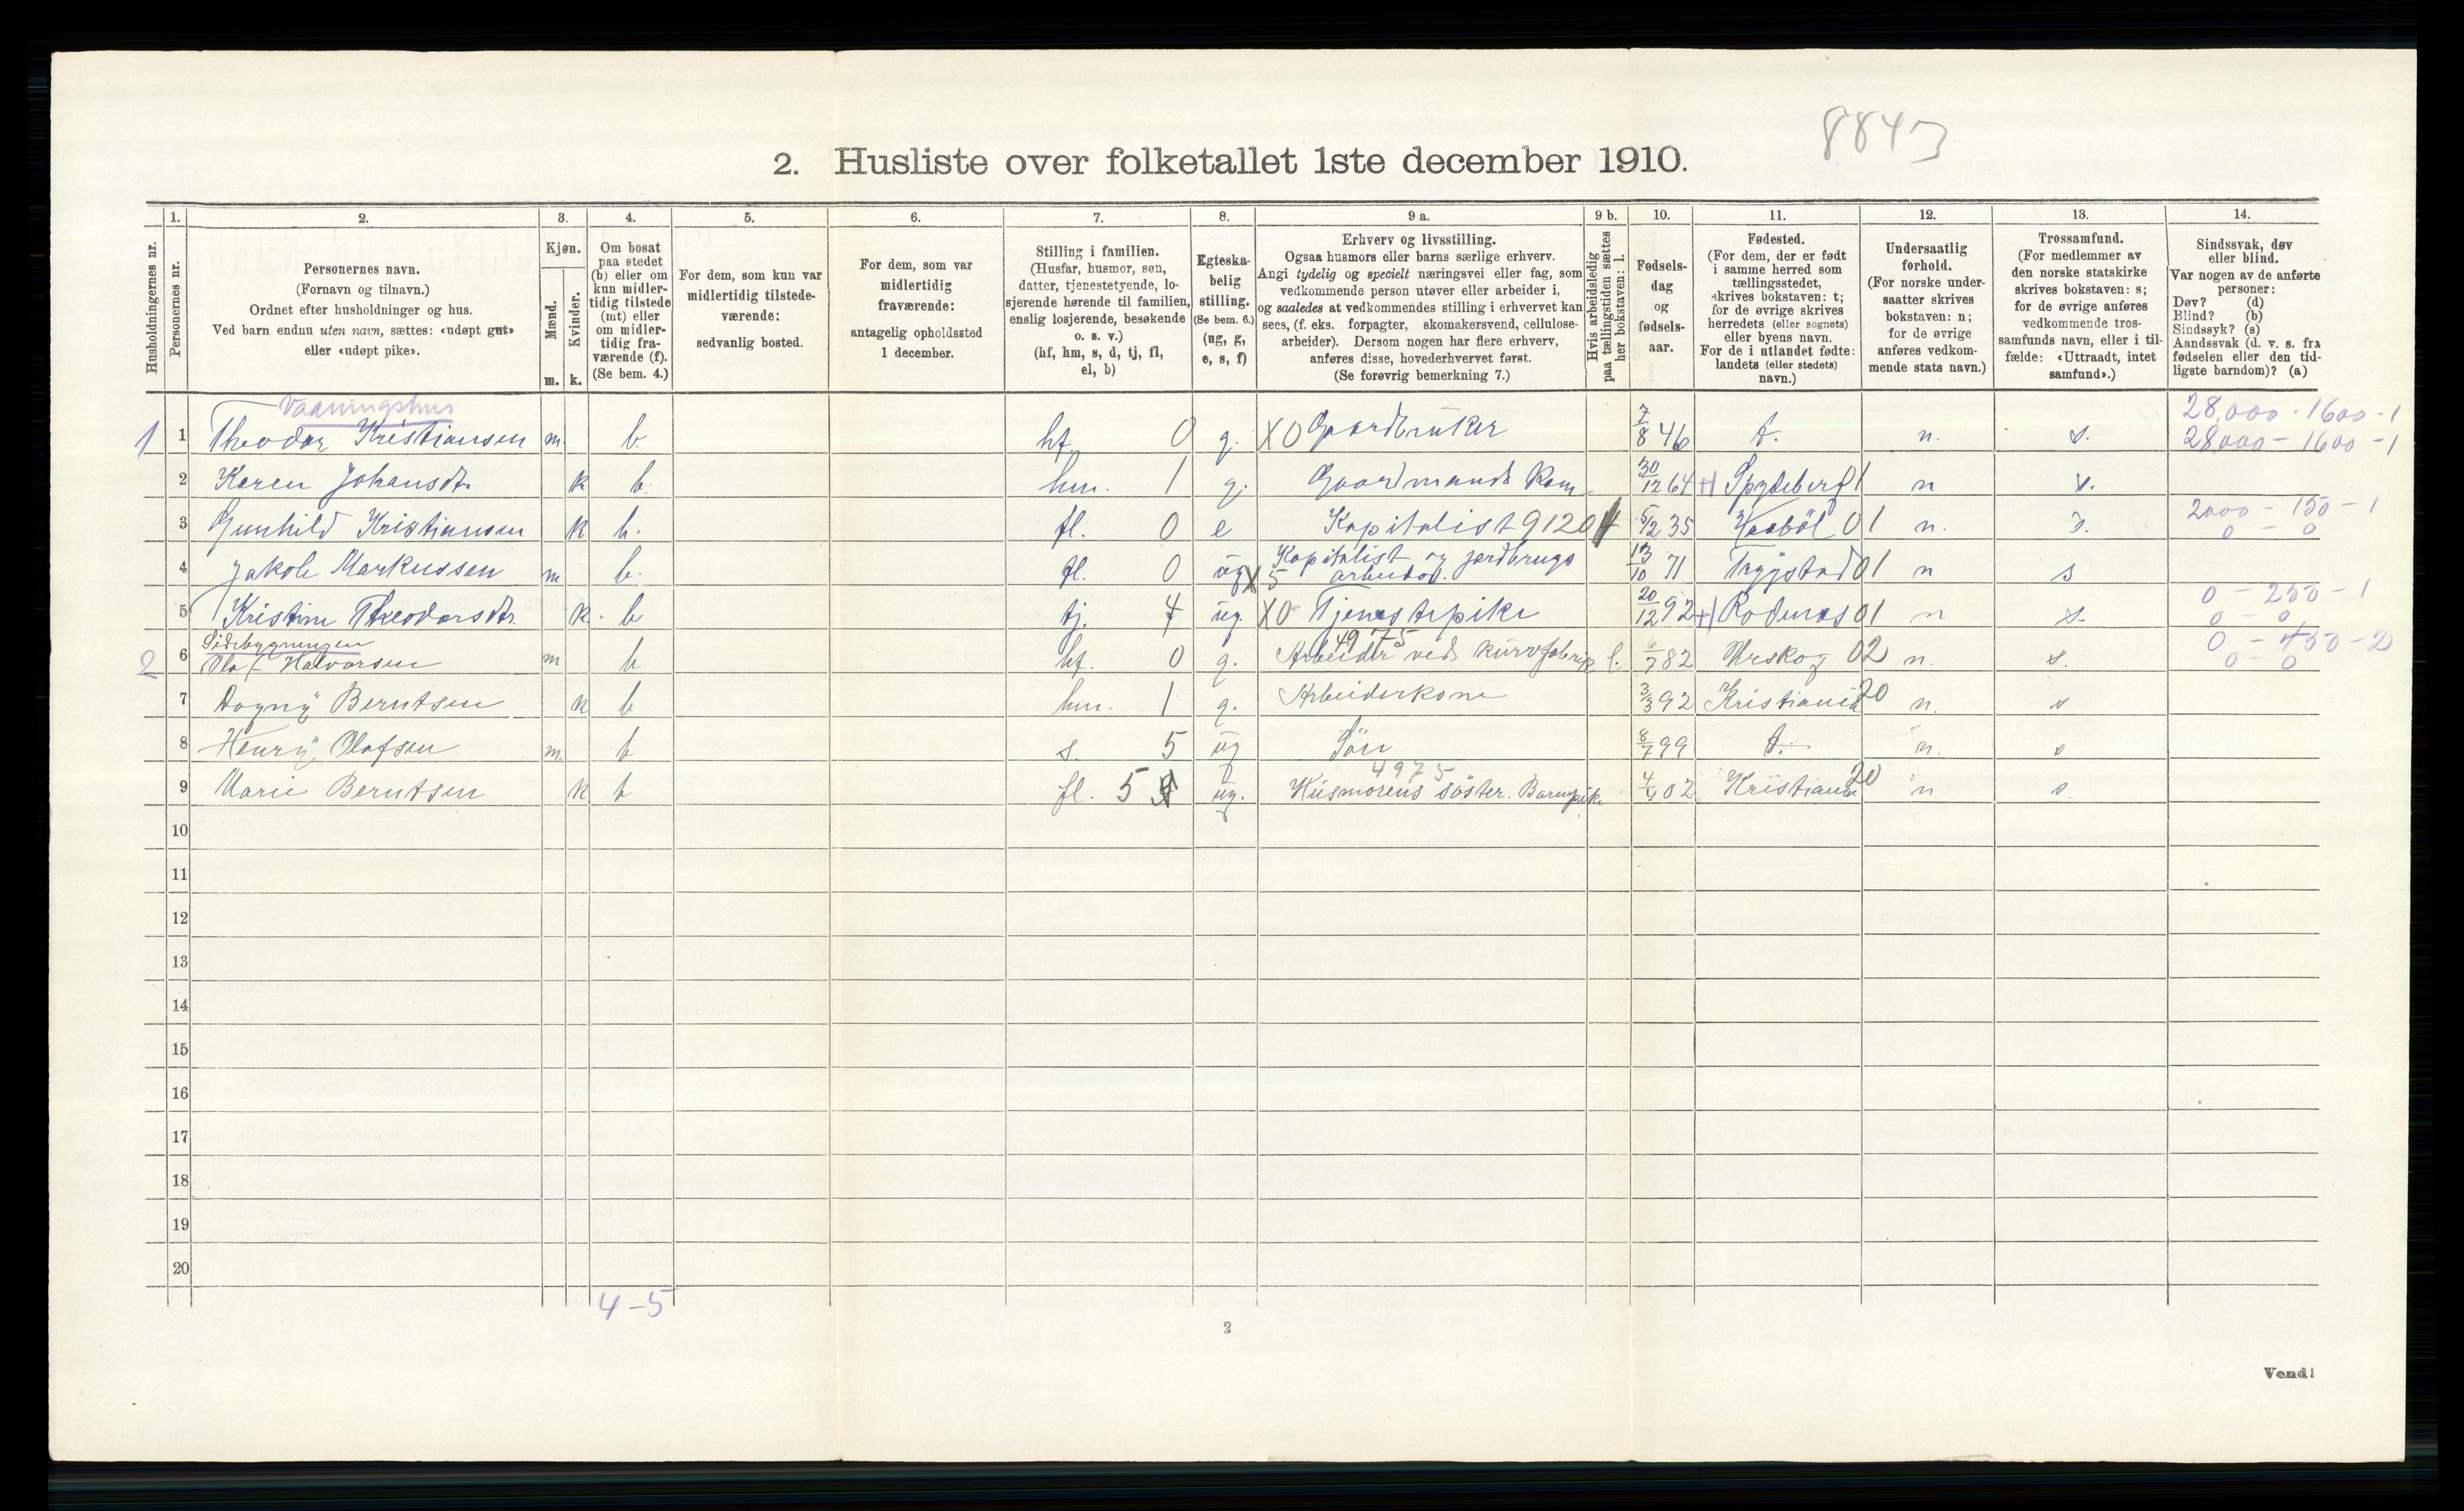 8843
2. Husliste over folketallet 1ste december 1910.
Husholdningernes nr.
1.
Personernes nr.
2.
Personernes navn.
(Fornavn og tilnavn.)
Ordnet efter husholdninger og hus.
Ved barn endnu uten navn, sættes: «udøpt gut»
eller «udøpt pike».
3.
Kjøn.
Mænd.
Kvinder.
m. k.
4.
Om bosat
paa stedet
(b) eller om
kun midler-
tidig tilstede
(mt) eller
om midler-
tidig fra-
værende (f).
(Se bem. 4.)
5.
For dem, som kun var
midlertidig tilstede-
værende:
sedvanlig bosted.
6.
For dem, som var
midlertidig
fraværende:
antagelig opholdssted
1 december.
7.
Stilling i familien.
(Husfar, husmor, søn,
datter, tjenestetyende, lo-
sjerende hørende til familien,
enslig losjerende, besøkende
o. s. v.)
(hf, hm, s, d, tj, fl,
el, b)
8.
Egteska-
belig
stilling.
(Se bem. 6.)
(ug, g,
e, s, f)
9 a.
Erhverv og livsstilling.
Ogsaa husmors eller barns særlige erhverv.
Angi tydelig og specielt næringsvei eller fag, som
vedkommende person utøver eller arbeider i,
og saaledes at vedkommendes stilling i erhvervet kan
sees, (f. eks. forpagter, skomakersvend, cellulose-
arbeider). Dersom nogen har flere erhverv,
anføres disse, hovederhvervet først.
(Se forøvrig bemerkning 7.)
9 b.
Hvis arbeidsledig
paa tællingstiden sættes
her bokstaven: l.
10.
Fødsels-
dag
og
fødsels-
aar.
11.
Fødested.
(For dem, der er født
i samme herred som
tællingsstedet,
skrives bokstaven: t;
for de øvrige skrives
herredets (eller sognets)
eller byens navn.
For de i utlandet fødte:
landets (eller stedets)
navn.)
12.
Undersaatlig
forhold.
(For norske under-
saatter skrives
bokstaven: n;
for de øvrige
anføres vedkom-
mende stats navn.)
13.
Trossamfund.
(For medlemmer av
den norske statskirke
skrives bokstaven: s;
for de øvrige anføres
vedkommende tros-
samfunds navn, eller i til-
fælde: «Uttraadt, intet
samfund».)
14.
Sindssvak, døv
eller blind.
Var nogen av de anførte
personer:
Døv? (d)
Blind? (b)
Sindssyk? (s)
Aandssvak (d. v. s. fra
fødselen eller den tid-
ligste barndom)? (a)
Vaaningshus 28,000 - 1600 - 1
1 1 Theodor Kristiansen m. b. hf. 0 g. X0 Gaardbruker 7/8 46 t. n. s. 28,000 - 1600 - 1
2 Karen Johansdtr. k b. hm. 1 g. Gaardmands Kone 30/12 64 Spydeberg 1 n s.
3 Gunhild Kristiansen k b. fl. 0 e Kapitalist 9120 5/12 35 Haabøl 01 n. s. 2000 - 150 - 1
0 - 0
4 Jakob Markussen m b. fl. 0 ug X5 Kapitalist og jordbrugs
arbeider. 13/10 71 Trygstad 01 n s
5 Kristine Theodorsdtr. k. b tj. 4 ug. X0 Tjenestepike 20/12 92 Rødenes 01 n s. 0 - 250 - 1
0 - 0
Sidebygningen 0 - 450 - 2
2 6 Olaf Halvorsen m b hf. 0 g. Arbeider ved kurvfabrik 4975 l. 6/7 82 Urskog 02 n. s. 0 - 0
7 Dagny Berntsen k b hm. 1 g. Arbeiderkone 3/3 92 Kristiania 20 n. s
8 Henry Olafsen m. b s. 5 ug Søn 8/7 99 t. n. s
9 Marie Berntsen k b fl. 5 ug. Husmorens søster. Barnepike 4975 4/4 02 Kristiania 20 n s.
10
11
12
13
14
15
16
17
18
19
20
4 - 5
2
Vend!